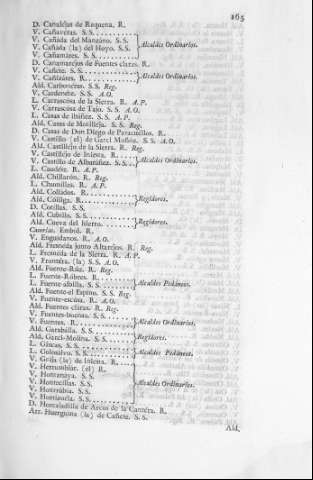 265
D. Canalejas de Requena. R.
V. Cañaveras. S. S.
V. Cañada del Manzano. S. S.
V. Cañada (la) del Hoyo. S. S.
V. Cañamares. S. S.
Alcaldes Ordinarios.
D. Cañamarejos de Fuentes claras. R.
V. Cañete. S. S.
V. Cañizáres. R.
Alcaldes Ordinarios.
Ald. Carboneras. S. S. Reg.
V. Cardenete. S. S. A.O.
L. Carrascosa de la Sierra. R. A.P.
V. Carrascosa de Tajo. S. S. A.O.
L. Casas de Ibañez. S. S. A.P.
Ald. Casas de Motilleja. S. S. Reg.
D. Casas de Don Diego de Paracuellos. R.
V. Castillo (el) de Garci Muñoz. S. S. A.O.
Ald. Castillejo de la Sierra. R. Reg.
V. Castillejo de Iniesta. R.
V. Castillo de Albaráñez. S. S.
Alcaldes Ordinarios.
L. Caudéte. R. A.P.
Ald. Chillarón. R. Reg.
L. Chumillas. R. A.P.
Ald. Collados. R.
Ald. Cólliga. R.
Regidores.
D. Cotillas. S. S.
Ald. Cubillo. S. S.
Ald. Cueva del Hierro.
Regidores.
Embid. R.
V. Enguidanos. R. A.O.
Ald. Fresneda junto Altarejos. R. Reg.
L. Fresneda de la Sierra. R. A.P.
V. Frontéra. (la) S. S. A.O.
Ald. Fuente-Rúz. R. Reg.
L. Fuente-Róbres. R.
L. Fuente albilla. S. S.
Alcaldes Pedáneos.
Ald. Fuente-el Espino. S. S. Reg.
V. Fuente-escúsa. R. A.O.
Ald. Fuentes claras. R. Reg.
V. Fuentes-buenas. S. S.
V. Fuentes. R.
Alcaldes Ordinarios.
Ald. Garabálla. S. S.
Ald. Garci-Molina. S. S.
Regidores.
L. Gáscas. S. S.
L. Golosalvo. S. S.
Alcaldes Pedáneos.
V. Gríja (la) de Iniesta. R.
V. Herrumblár. (el) R.
V. Hontanaya. S. S.
V. Hontecillas. S. S.
V. Hontexúna. S. S.
V. Hontiánela. S. S.
Alcaldes Ordinarios.
D. Hortaladilla de Arcos de la Cantéra. R.
Arr. Huerguina (la) de Cañete. S. S.
Ald.